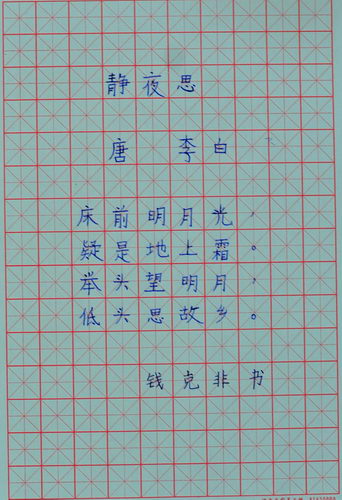 静夜思
唐 李白
床前明月光，
疑是地上霜。
举头望明月，
低头思故乡。
钱克非书